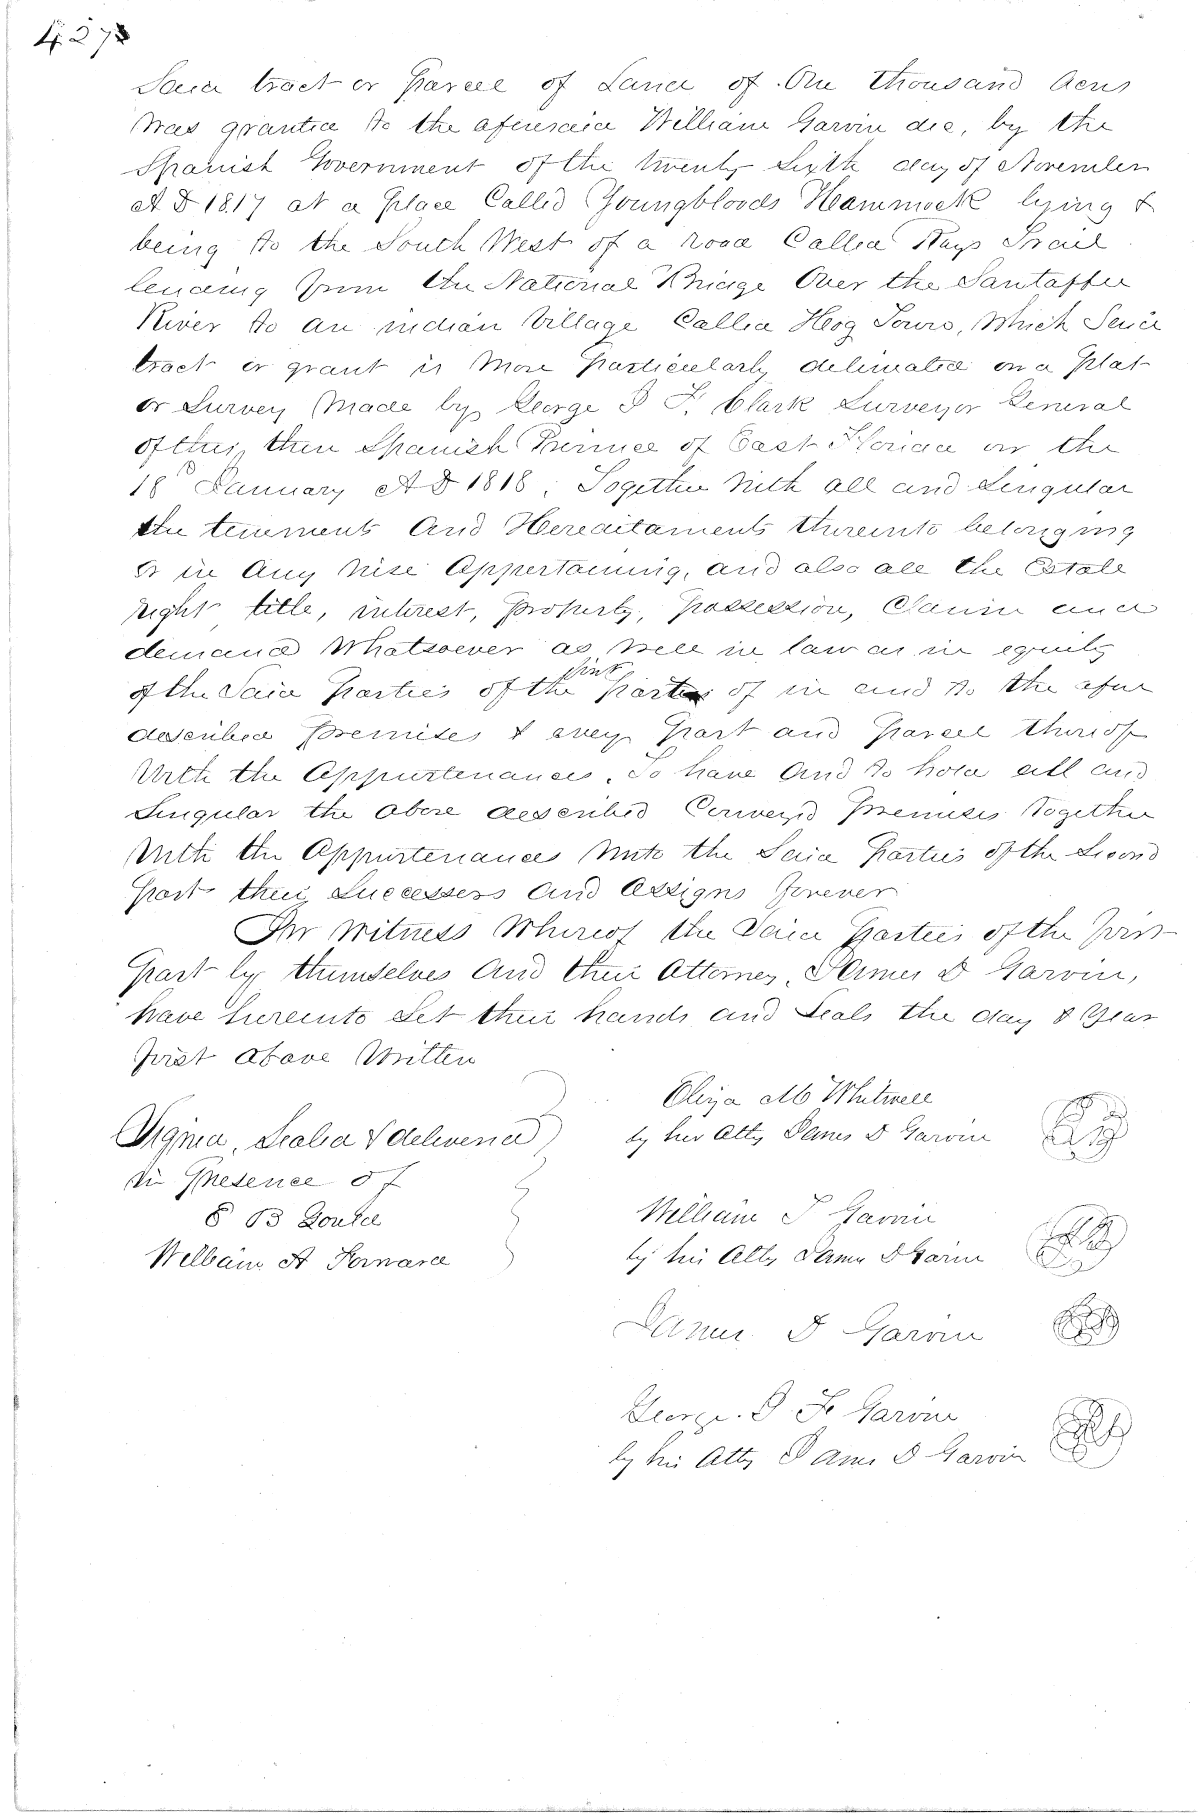 427
Said tract or parcel of Land of One thousand Acres
Was granted to the aforesaid William Garvin dec, by the
Spanish Government of the twenty Sixth day of November
A D 1817 at a place Called Youngbloods Hammock lying &
being to the South West of a road Called Rays Trail
leading from the National Bridge Over the Santaffee
River to an indian Village Called Hog Town, Which Said
tract or grant is More particularly delineated on a plat
or Survey Made by George J F. Clark Surveyor General
of this, then Spanish Province of East Florida on the
18 January A D 1818, Together With all and Singular
the tenements And Hereditaments thereunto belonging
or in Any Wise Appertaining, and also all the Estate
right title, interest, property, possession, Claim and
demand Whatsoever as Well in law as in equity
first
of the Said Parties of the part of in and to the afore
described premises & every part and parcel thereof
With the Appurtenances. To have And to hold all and
Singular the above described Conveyed premises together
With the Appurtenances Unto the Said Parties of the Second
part their Successors and Assigns forever
In Witness Whereof the Said Parties of the first
part by themselves And their Attorney, James D Garvin,
have hereunto Set their hands and Seals the day & Year
first above Written
Eliza M Whitwell
Signed, Sealed & delivered
by her Atty James D Garvin
in Presence of
S B Gould
William T Garvin
William A Forward
by his Atty James D Garvin
James D Garvin
George J F Garvin
by his Atty James D Garvin